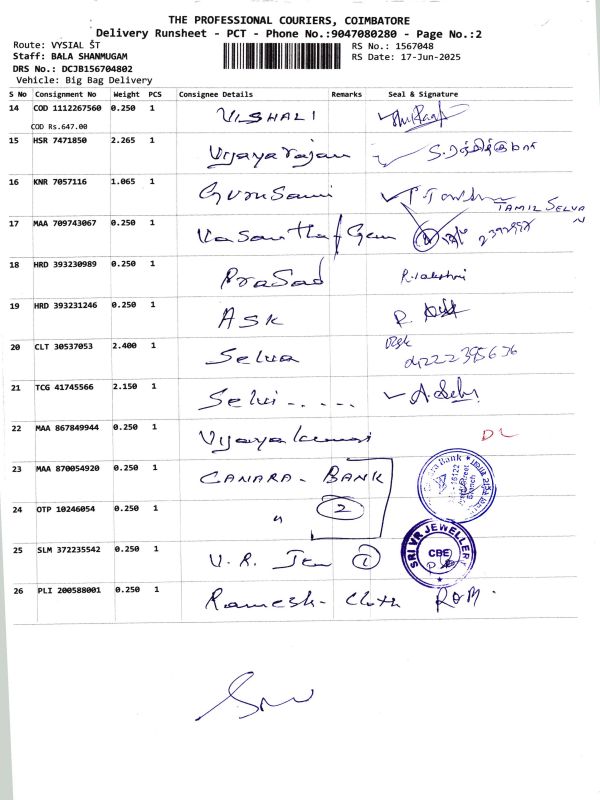 THE PROFESSIONAL COURIERS, COIMBATORE
Delivery Runsheet - PCT - Phone No.:9047080280 - Page No.:2
Route: VYSIAL ST RS No.: 1567048
Staff: BALA SHANMUGAM RS Date: 17-Jun-2025
DRS No.: DCJB156704802
Vehicle: Big Bag Delivery
S No Consignment No Weight PCS Consignee Details Remarks Seal & Signature
14 COD 1112267560 0.250 1 VISHALI
COD Rs.647.00
15 HSR 7471850 2.265 1 Vijayarajan
16 KNR 7057116 1.065 1 GuruSami
TAMIL SELVAN
17 MAA 709743067 0.250 1
18 HRD 393230989 0.250 1 PraSad R.lakshmi
19 HRD 393231246 0.250 1 ASK R
20 CLT 30537053 2.400 1 Selva
21 TCG 41745566 2.150 1 Selvi-.... A.Selvi
22 MAA 867849944 0.250 1 Vijayakumari DL
23 MAA 870054920 0.250 1 CANARA - BANK
24 OTP 10246054 0.250 1 " 2
25 SLM 372235542 0.250 1 V.R. 1 SRI VR JEWELLERY CBE
26 PLI 200588001 0.250 1 Ramesh - Cloth